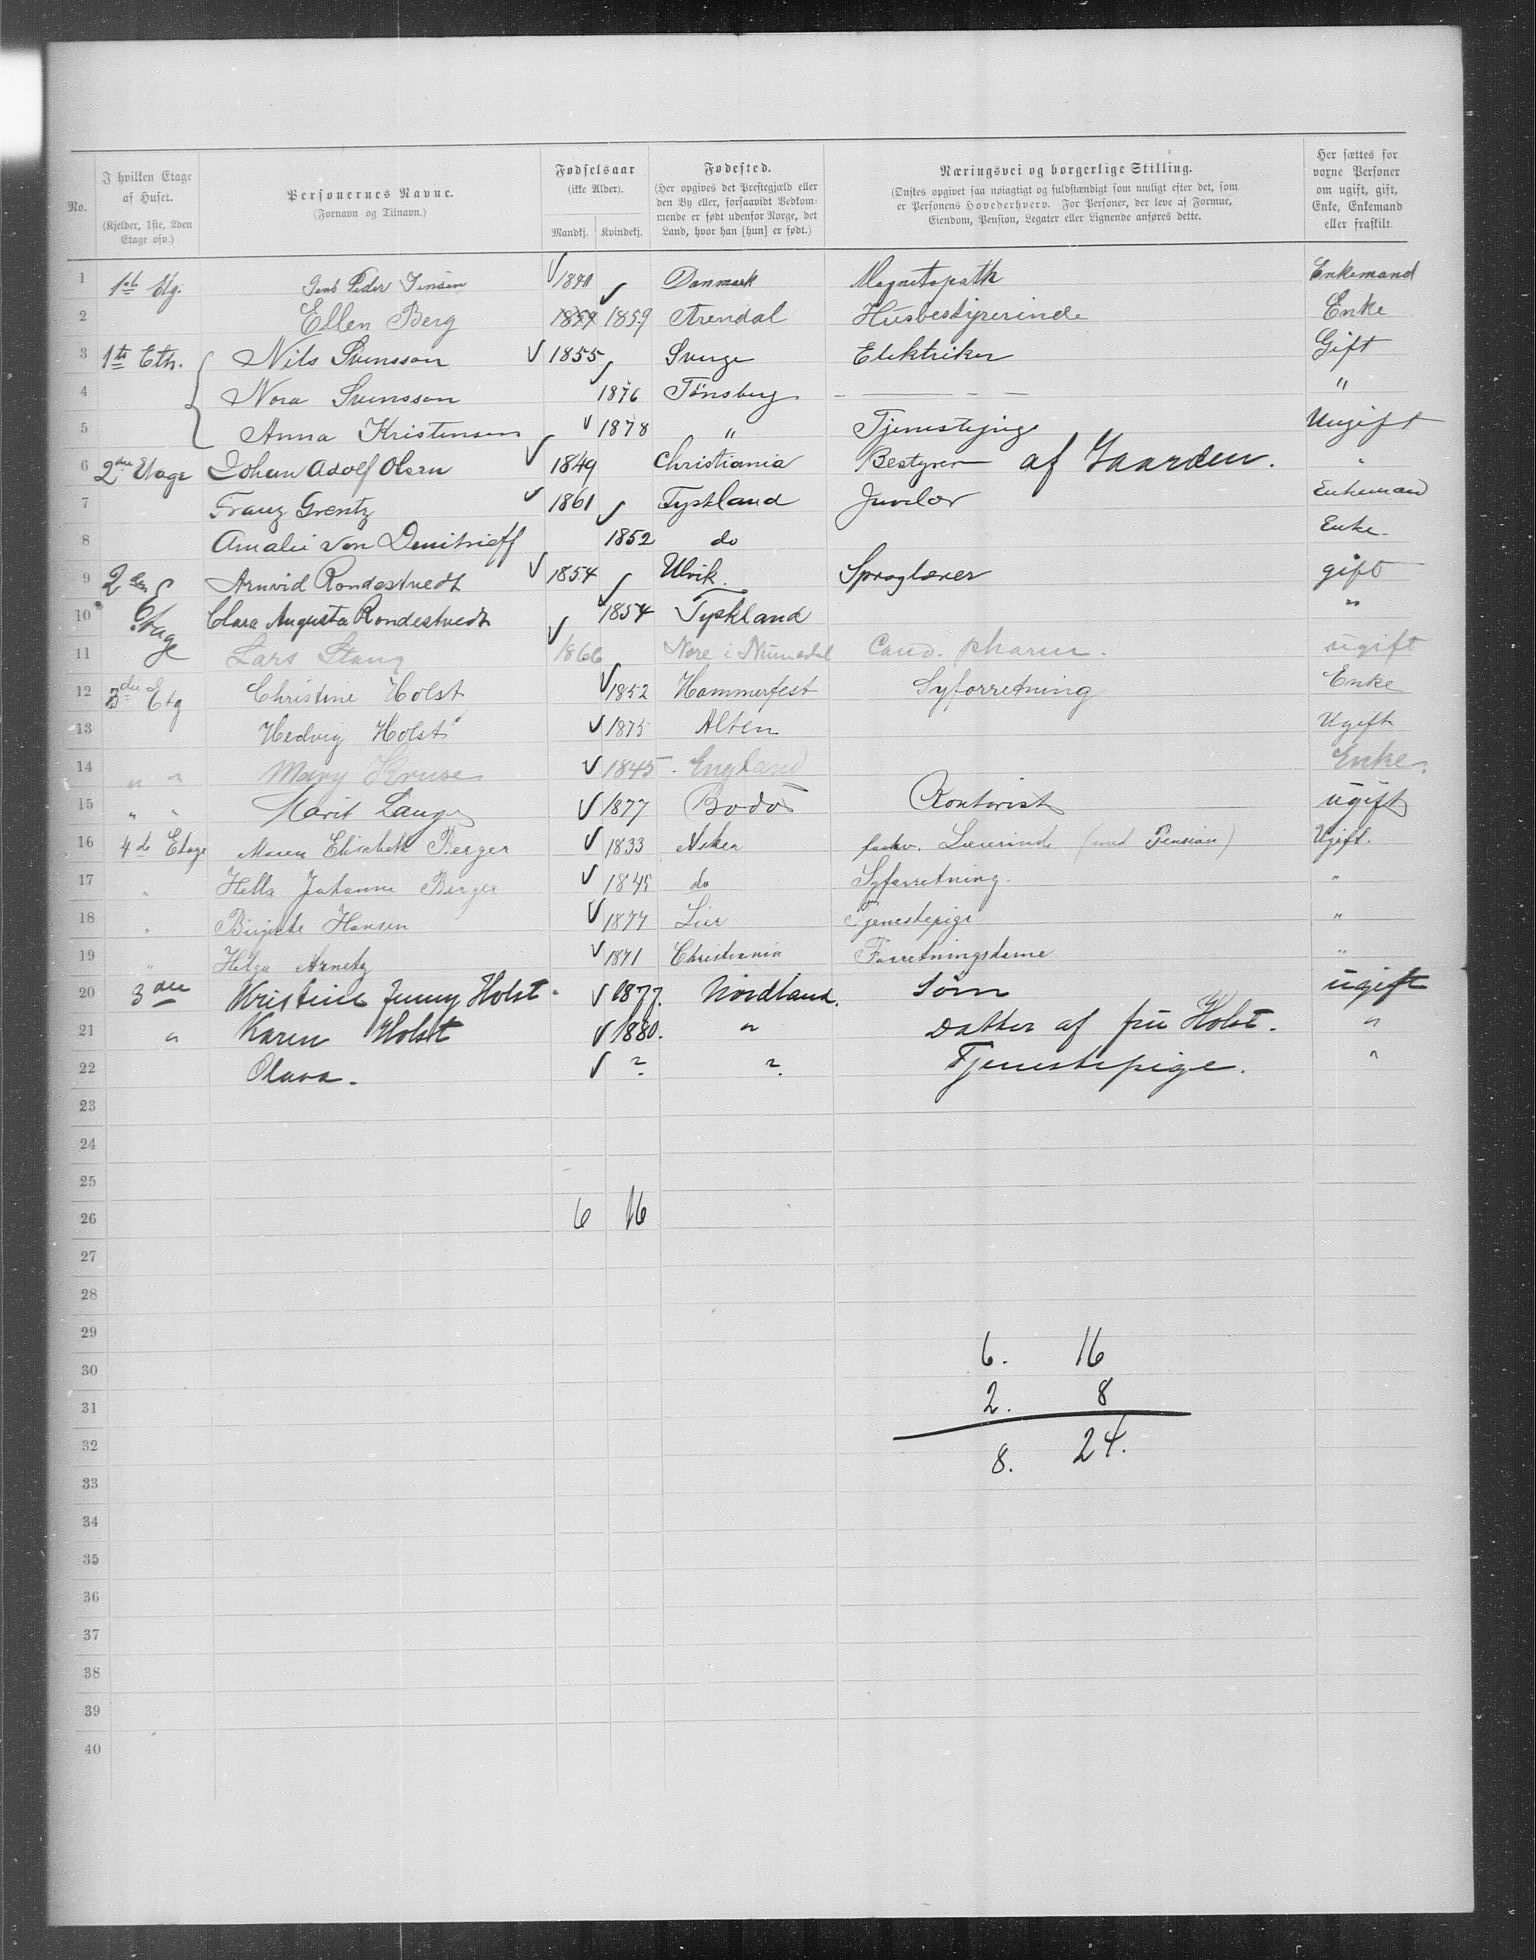 No.
I hvilken Etage af Huset. (Kjelder, 1ste, 2den Etage osv.)
Personernes Navne. (Fornavn og Tilnavn.)
Fødselsaar (ikke Alder). Mandkj. Kvindekj.
Fødested. (Her opgives det Prestegjæld eller den By eller, forsaavidt Vedkommende er født udenfor Norge, det Land, hvor han [hun] er født.)
Næringsvei og borgerlige Stilling. (Ønskes opgivet saa nøiagtigt og fuldstændigt som muligt efter det, som er Personens Hovederhverv. For Personer, der leve af Formue, Eiendom, Pension, Legater eller Lignende anføres dette.
Her sættes for voxne Personer om ugift, gift, Enke, Enkemand eller fraskilt.
1 1ste Etg. Jens Peder Jensen 1840 Danmark Magnetopath Enkemand
2 Ellen Berg 1859 1859 Arendal Husbestyrerinde Enke
3 1ste Eth. Nils Svensson 1855 Sverge Elektriker Gift
4 Nora Svensson 1876 Tönsberg - — - - "
5 Anna Kristensen 1878 " Tjenestepige Ungift
6 2den Etage Johan Adolf Olsen 1849 Christiania Bestyrer af Gaarden. "
7 Franz Grentz 1861 Tyskland Juvelær Enkemand
8 Amalie von Demitrieff 1852 do Enke.
9 2den Arnvid Rondestvedt 1854 Ulvik. Sproglærer gift
10 Etage Clara Augusta Rondestvedt 1854 Tyskland "
11 Lars Stang 1866 Nore i Numedal Cand. pharm. ugift
12 3die Etg Christine Holst 1852 Hammerfest Syforretning Enke
13 Hedvig Holst 1875 Alten Ugift
14 " " Mary Kruse 1845 England Enke.
15 " " Marit Lange 1877 Bodø Kontorist ugift
16 4de Etage Maren Elisabeth Berger 1833 Aker forhv. Lærerinde (med Pension) Ugift.
17 " Hella Johanne Berger 1845 do Syforretning. "
18 " Birgitte Hansen 1874 Lier Tjenestepige "
19 " Helga Arnetz 1871 Christiania Forretningsdame "
20 3die Kristine Jenny Holst. 1877. Nordland. Søm ugift
21 " Karen Holst 1880. " Datter af fru Holst. "
22 Olava. ? ? Tjenestepige. "
23
24
25
26 6 16
27
28
29
30 6. 16
31 2. 8
32 8. 24.
33
34
35
36
37
38
39
40